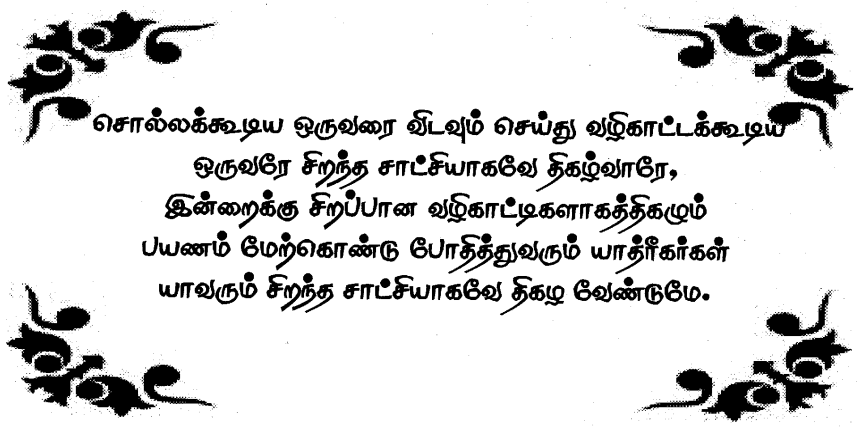 சொல்லக்கூடிய ஒருவரை விடவும் செய்து வழிகாட்டக்கூடிய
ஒருவரே சிறந்த சாட்சியாகவே திகழ்வாரே,
இன்றைக்கு சிறப்பான வழிகாட்டிகளாகத்திகழும்
பயணம் மேற்கொண்டு போதித்துவரும் யாத்ரீகர்கள்
யாவரும் சிறந்த சாட்சியாகவே திகழ வேண்டுமே.